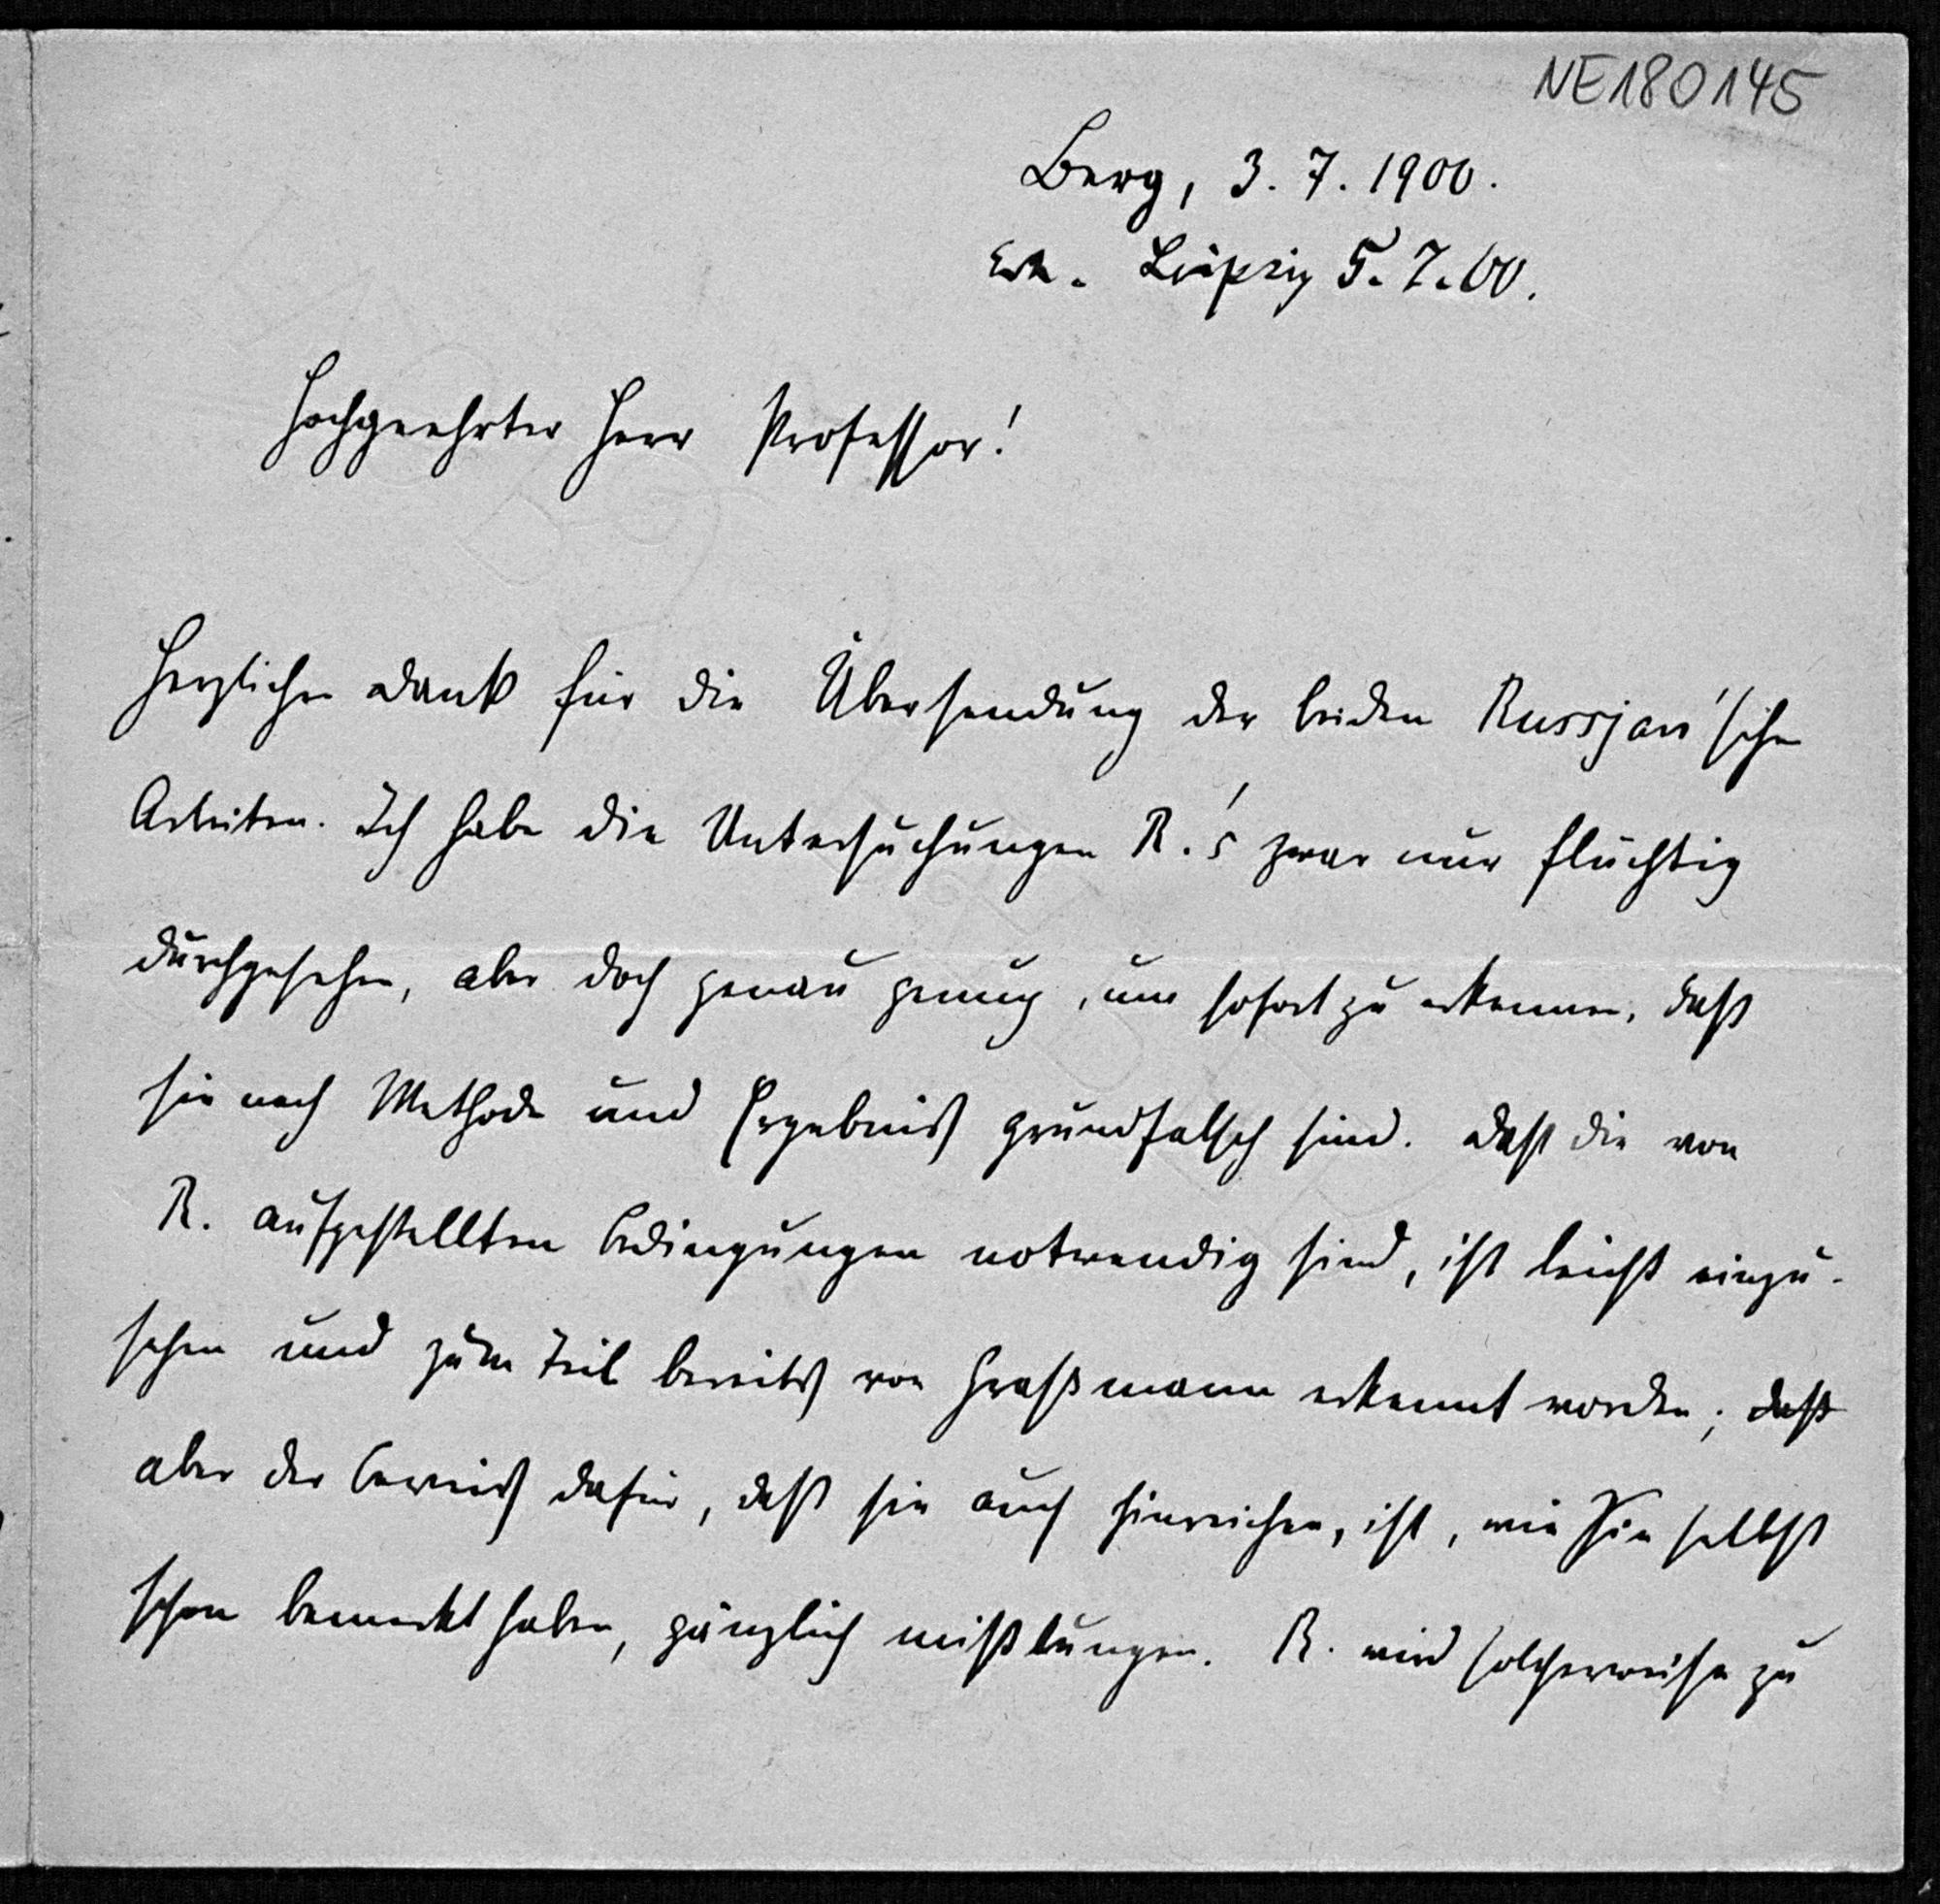 NE180145
Berg, 3. 7. 1900.
Erh. Leipzig 5. 7. 00.
Hochgeehrter Herr Professor!
Herzlichen Dank für die Übersendung der beiden Russjan'schen
Arbeiten. Ich habe die Untersuchungen R.'s zwar nur flüchtig
durchgesehen, aber doch genau genug, um sofort zu erkennen, daß
sie nach Methode und Ergebnis grundfalsch sind. Daß die von
R. aufgestellten Bedingungen notwendig sind, ist leicht einzu-
sehen und zum Teil bereits von Graßmann erkannt worden; daß
aber der Beweis dafür, daß sie auch hinreichen, ist, wie Sie selbst
schon bemerkt haben, gänzlich mißlungen. R. wird solcherweise zu